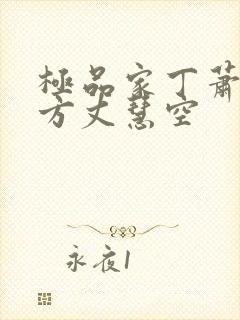 極品家丁蕭
方丈慧空
永夜1